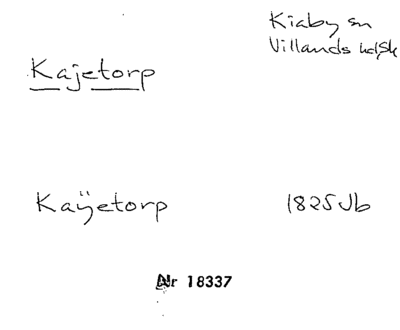 Kiaby sn
Villands hd Sk
Kajetorp
Kaÿetorp 1825 Jb
Nr 18337